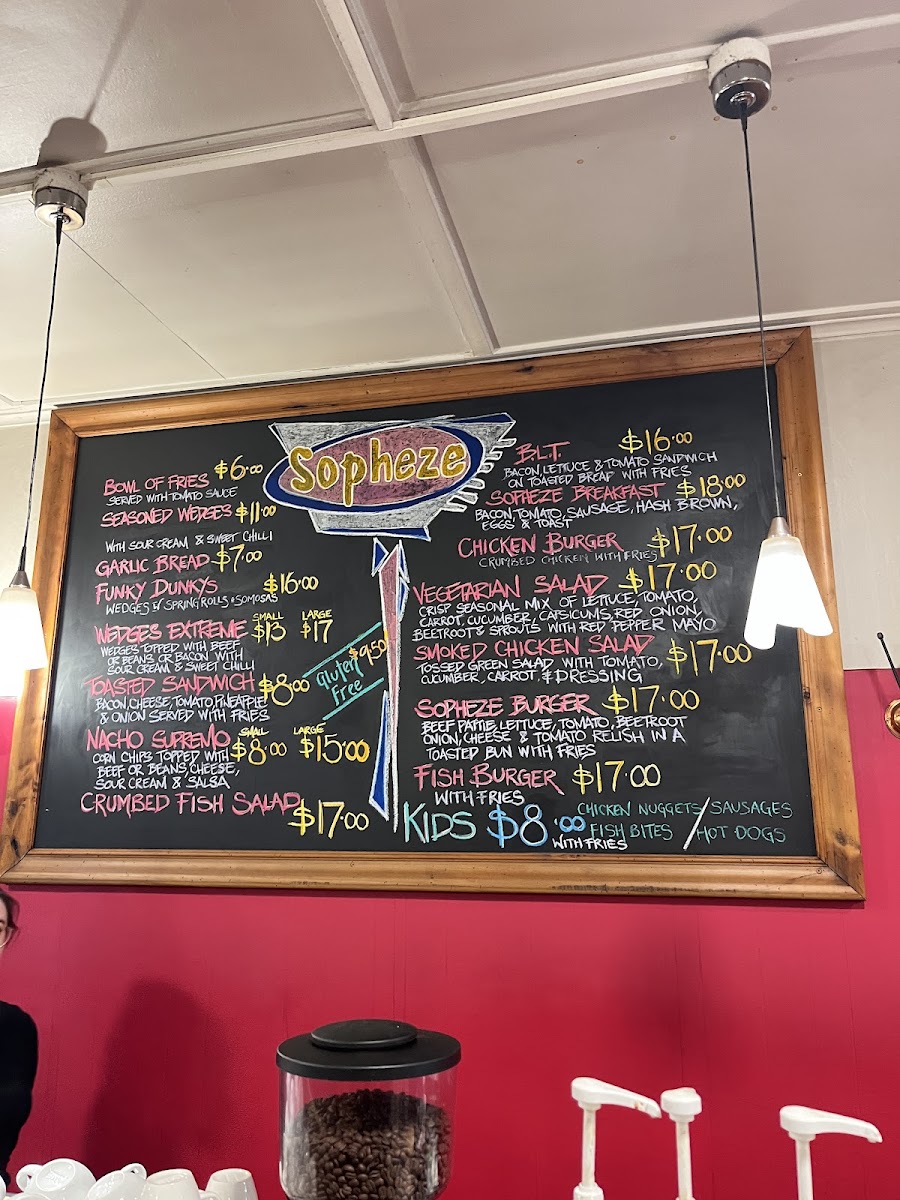 Sopheze
BOWL OF FRIES $6.00
SERVED WITH TOMATO SAUCE
SEASONED WEDGES $11.00
WITH SOUR CREAM & SWEET CHILLI
GARLIC BREAD $7.00
FUNKY DUNKYS $16.00
WEDGES SPRING ROLLS & SOMOSAS
SMALL LARGE
WEDGES EXTREME $13 $17
WEDGES TOPPED WITH BEEF
OR BEANS OR BACON WITH
SOUR CREAM & SWEET CHILLI
TOASTED SANDWICH $8.00
Gluten $9.50
Free
BACON, CHEESE, TOMATO, PINEAPPLE
& ONION SERVED WITH FRIES
SMALL LARGE
NACHO SUPREMO $8.00 $15.00
CORN CHIPS TOPPED WITH
BEEF OR BEANS, CHEESE,
SOUR CREAM & SALSA
CRUMBED FISH SALAD $17.00
B.L.T. $16.00
BACON, LETTUCE & TOMATO SANDWICH
ON TOASTED BREAD WITH FRIES
SOPHEZE BREAKFAST $18.00
BACON, TOMATO, SAUSAGE, HASH BROWN,
EGGS & TOAST
CHICKEN BURGER $17.00
CRUMBED CHICKEN WITH FRIES
VEGETARIAN SALAD $17.00
CRISP SEASONAL MIX OF LETTUCE, TOMATO,
CARROT, CUCUMBER, CAPSICUMS, RED ONION,
BEETROOT & SPROUTS WITH RED PEPPER MAYO
SMOKED CHICKEN SALAD $17.00
TOSSED GREEN SALAD WITH TOMATO,
CUCUMBER, CARROT, & DRESSING
SOPHEZE BURGER $17.00
BEEF PATTIE, LETTUCE, TOMATO, BEETROOT
ONION, CHEESE & TOMATO RELISH IN A
TOASTED BUN WITH FRIES
FISH BURGER $17.00
WITH FRIES
KIDS $8.00 CHICKEN NUGGETS / SAUSAGES
FISH BITES / HOT DOGS
WITH FRIES